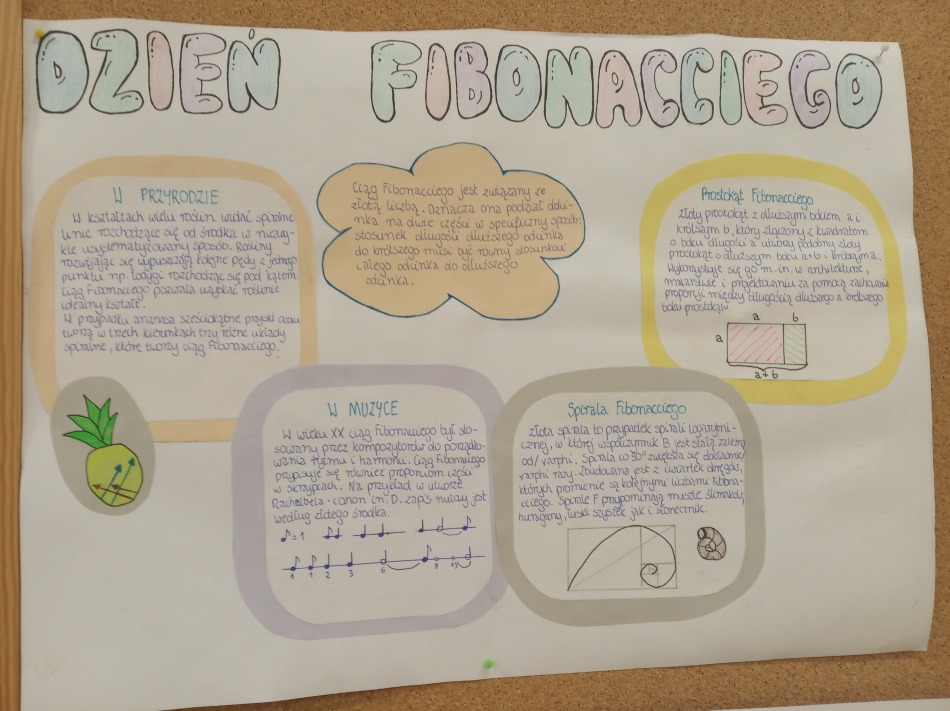 DZIEŃ FIBONACCIEGO
W PRZYRODZIE
W kształtach wielu roślin widać spiralne
linie rozchodzące się od środka w niezwy-
kle usystematyzowany sposób. Rośliny
rozwijając się wypuszczają kolejne pędy z jednego
punktu np. łodygi rozchodząc się pod kątem.
Ciąg Fibonacciego pozwala uzyskać roślinie
idealny kształt.
W przypadku ananasa sześciokątne przyłuski
tworzą w trzech kierunkach trzy różne układy
spiralne, które tworzy ciąg Fibonacciego.
Ciąg Fibonacciego jest związany ze
złotą liczbą. Oznacza ona podział odci-
nka na dwie części w specyficzny sposób:
stosunek długości dłuższego odcinka
do krótszego musi być równy stosunkowi
całego odcinka do dłuższego
odcinka.
Prostokąt Fibonacciego
Złoty prostokąt z dłuższym bokiem a i
krótszym b, który złączony z kwadratem
o boku długości a utworzy podobny złoty
prostokąt o dłuższym boku a+b i krótszym a.
Wykorzystuje się go m.in. w architekturze,
malarstwie i projektowaniu za pomocą zachowania
proporcji między długością dłuższego a krótszego
boku prostokąta
a b
a
a+b
W MUZYCE
W wieku XX ciąg Fibonacciego był sto-
sowany przez kompozytorów do porządko-
wania rytmu i harmonii. Ciąg Fibonacciego
przypisuje się również proporcjom części
w skrzypcach. Na przykład w utworze
Rachelbela - canon in D. zapis nutowy jest
według złotego środka.
=1
1 1 2 3 6 8 13
Spirala Fibonacciego
Złota spirala to przypadek spirali logarytmi-
cznej, w której współczynnik B jest stałą zależną
od/varphi. Spirala co 90° zwiększa się dodatnie/
varphi razy. Zbudowana jest z ćwiartek okręgów,
których promienie są kolejnymi liczbami Fibona-
cciego. Spirale F przypominają muszle ślimaków,
huragany, łuski szyszek jak i słonecznik.